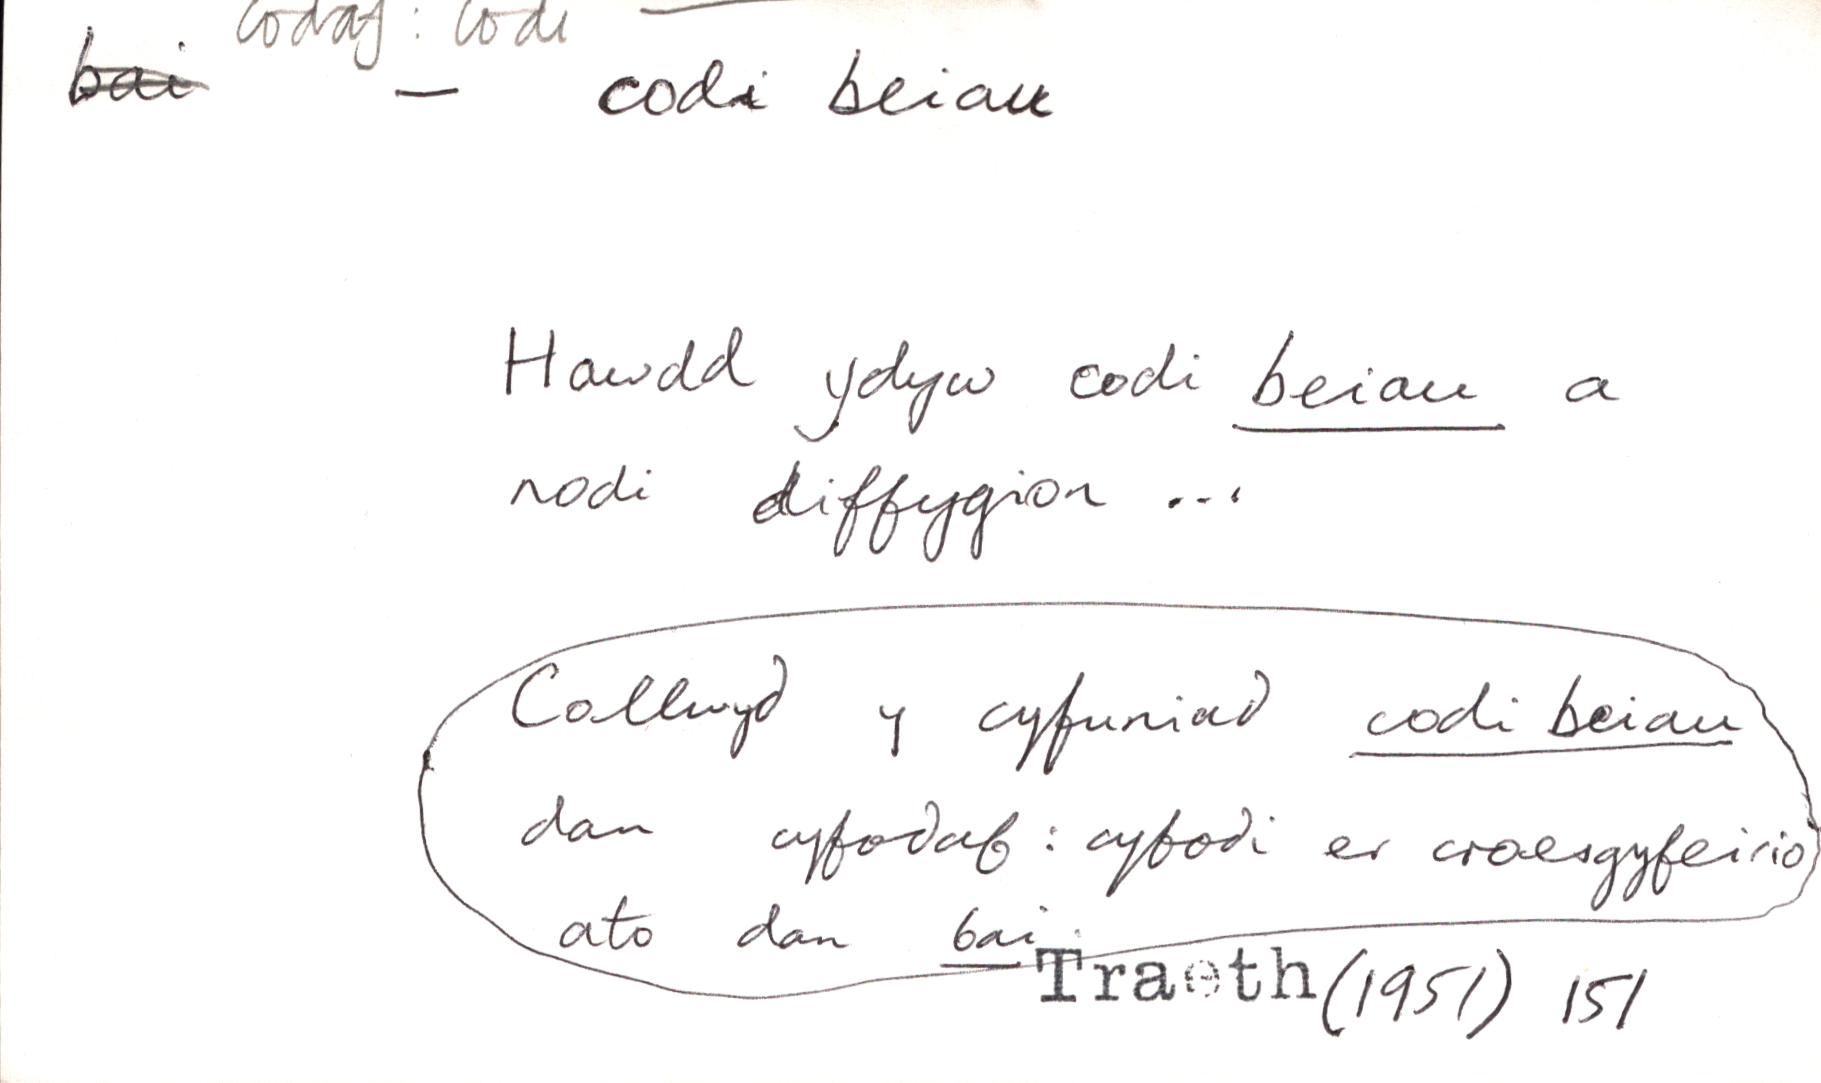 codaf : codi
bai — codi beiau
Hawdd ydyw codi beiau a
nodi diffygion ...
Collwyd y cyfuniad codi beiau
dan cyfodaf : cyfodi er croesgyfeirio
ato dan bai.
Traeth (1951) 151